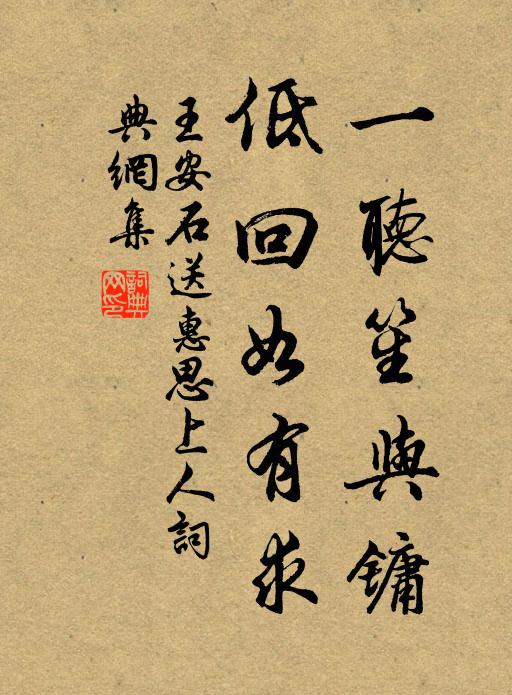 一聽笙與鏞
低回如有求
王安石送惠思上人詞
典網集
詞典網印